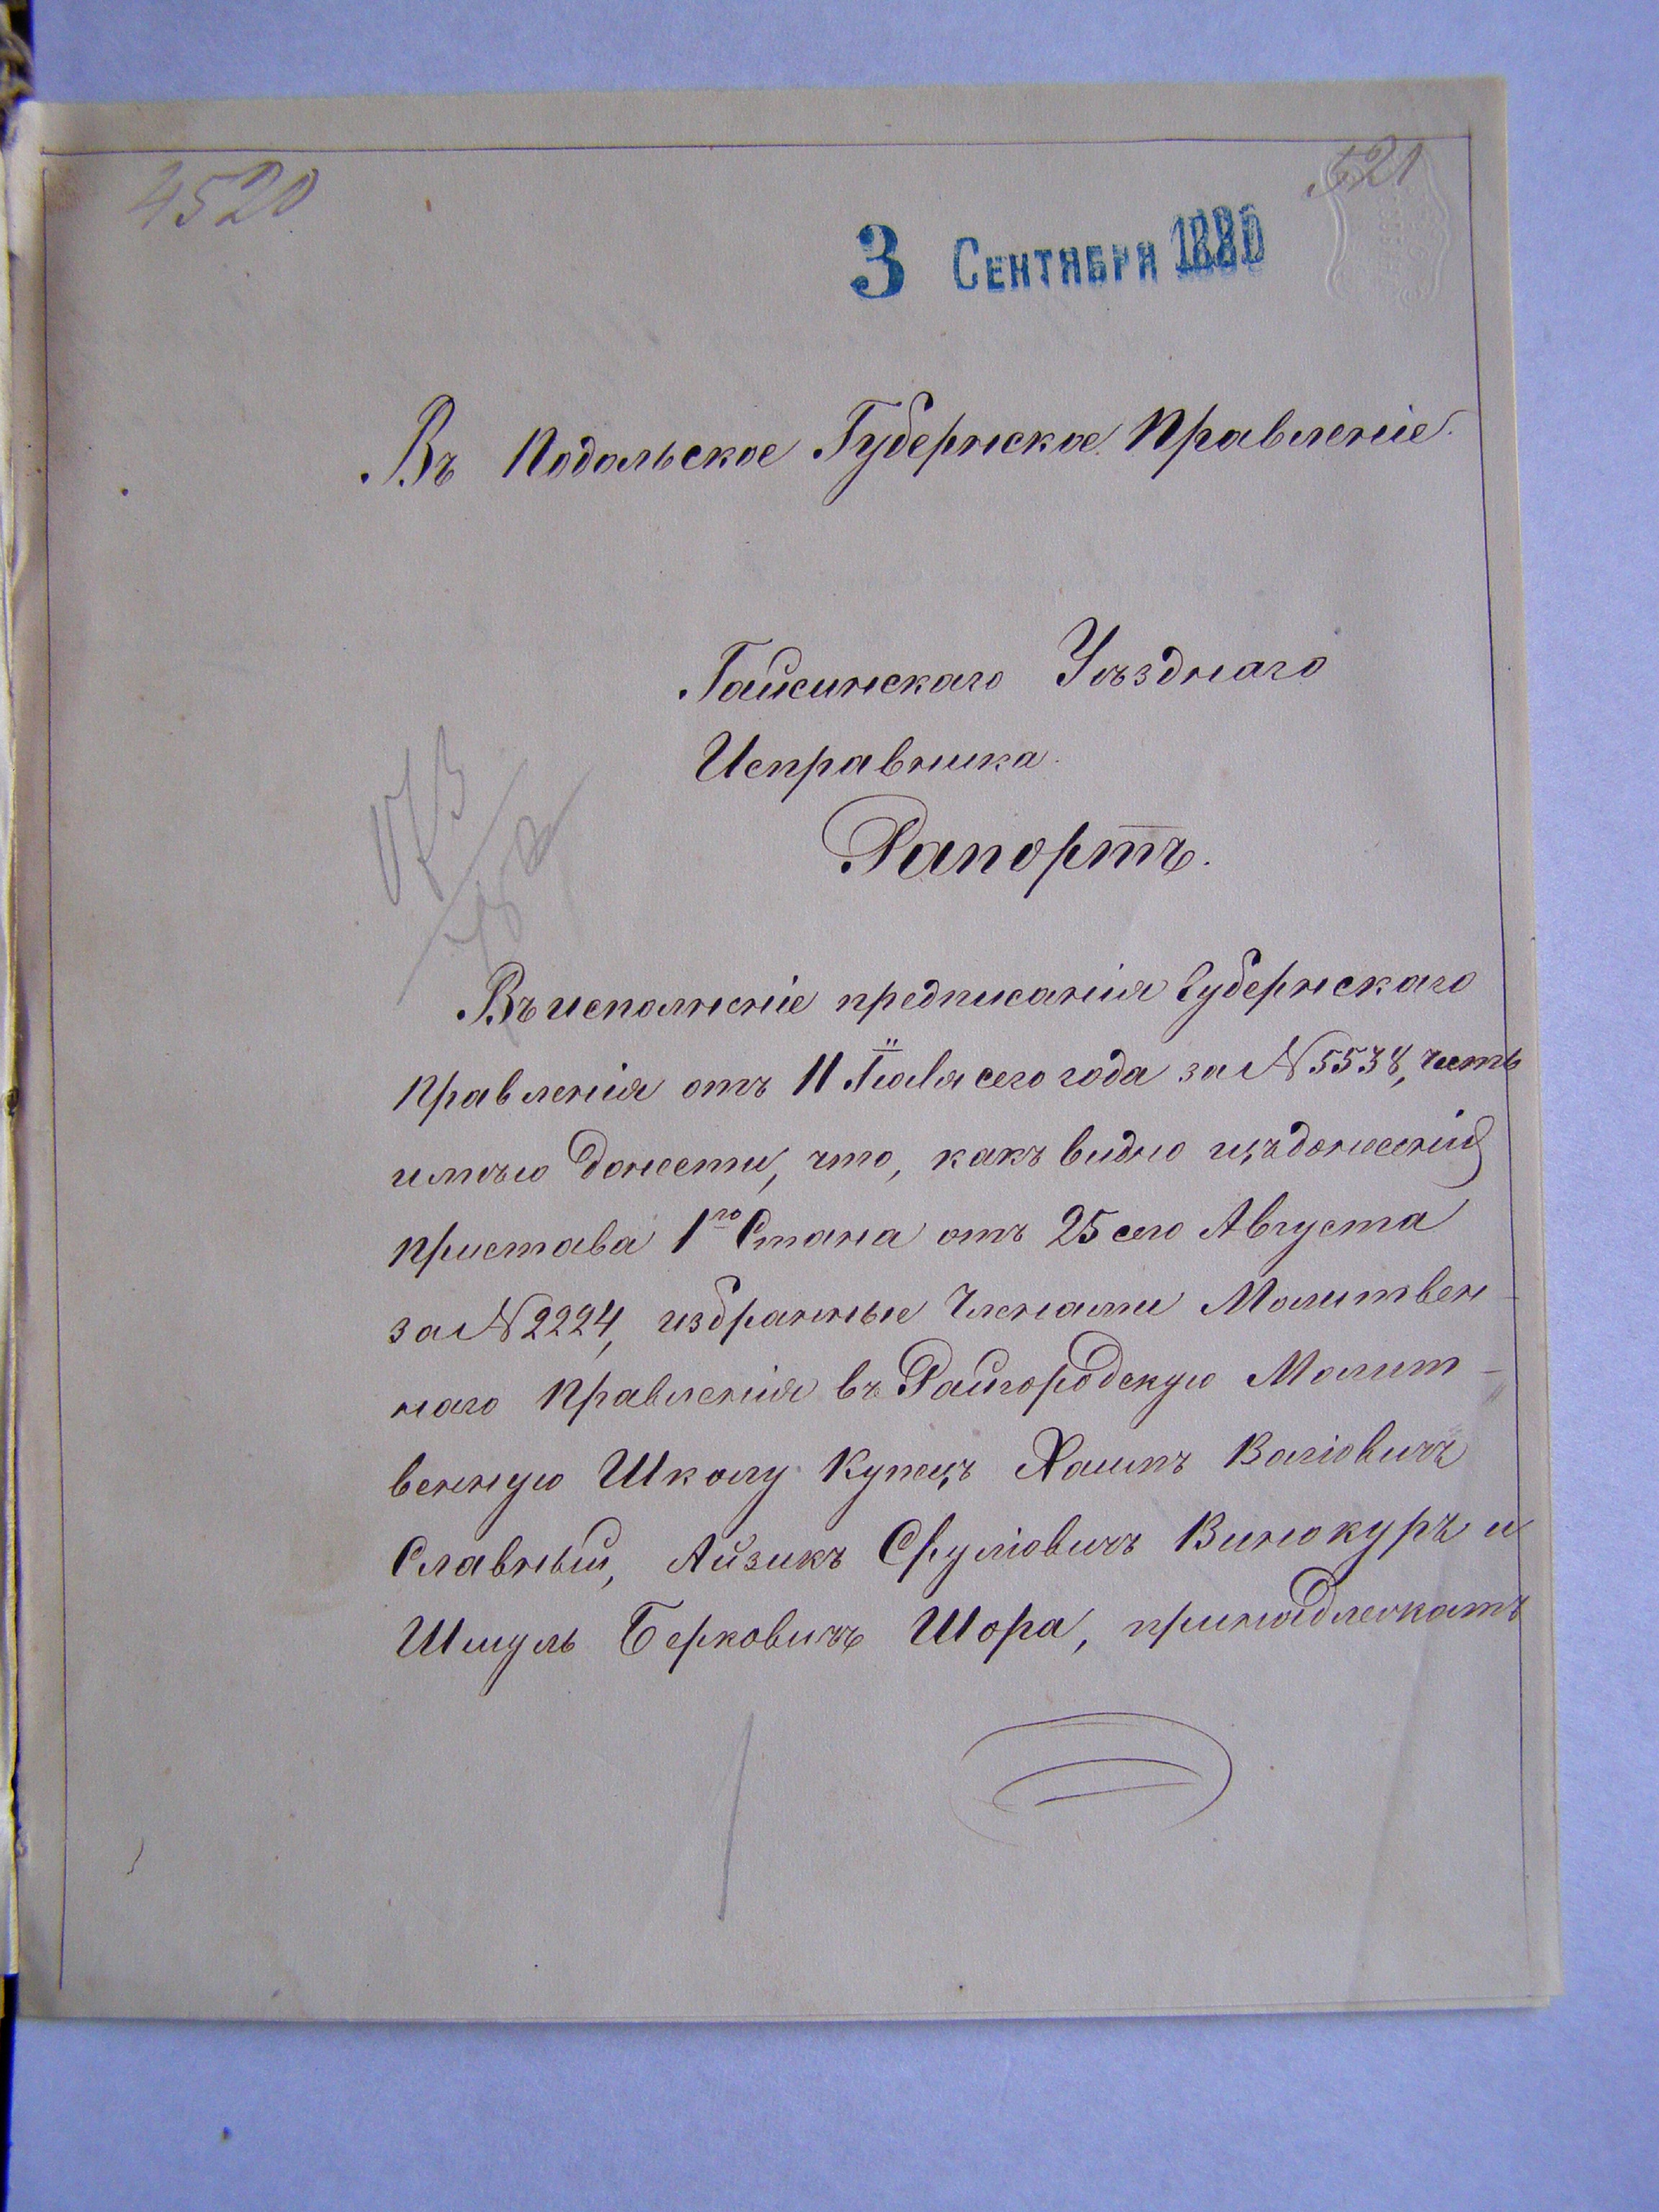 4520
521
3 Сентября 1880
Въ Подольское Губернское Правленіе.
Гайсинскаго Уѣзднаго
Исправника.
Рапортъ.
Въ исполненіе предписанія Губернскаго
Правленія отъ 11 Іюля сего года за № 5538, честь
имѣю донести, что, какъ видно изъ донесенія
Пристава 1го Стана отъ 25 сего Августа
за № 2224, избранные Членами Молитвен-
наго Правленія въ Райгородскую Молит-
венную Школу Купецъ Хаимъ
Славный, Айзикъ Сруліовичъ Винокуръ и
Шмуль Берковичъ Шора, принадлежатъ